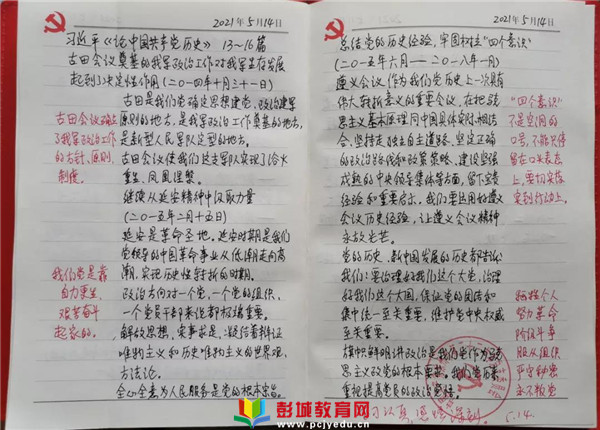 2021年5月14日
习近平《论中国共产党历史》 13～16篇
古田会议奠基的我军政治工作对我军生存发展
起到了决定性作用(二〇一四年十月三十一日)
古田是我们党确定思想建党、政治建军
原则的地方,是我军政治工作奠基的地方,
是新型人民军队定型的地方。
古田会议使我们这支军队实现了浴火
重生、凤凰涅槃。
继续从延安精神中汲取力量
(二〇一五年二月十五日)
延安是革命圣地。延安时期是我们
党领导的中国革命事业从低潮走向高
潮、实现历史性转折的时期。
政治方向对一个党,一个党的组织,
一个党员干部来说都极端重要。
解放思想,实事求是,凝结着辩证
唯物主义和历史唯物主义的世界观、
方法论。
全心全意为人民服务是党的根本宗旨。
古田会议确立
了我军政治工作
的方针、原则、
制度。
我们党是靠
自力更生,
艰苦奋斗
起家的。
2021年5月14日
总结党的历史经验,牢固树立"四个意识"
(二〇一五年六月——二〇一八年一月)
遵义会议,作为我们党历史上一次具有
伟大转折意义的重要会议,在把马克
思主义基本原理同中国具体实际相结
合、坚持走独立自主道路、坚定正确
的政治路线和政策策略、建设坚强
成熟的中央领导集体等方面,留下宝贵
经验和重要启示。我们要运用好遵义
会议历史经验,让遵义会议精神
永放光芒。
党的历史、新中国发展的历史都告诉
我们:要治理好我们这个大党,治理
好我们这个大国,保证党的团结和
集中统一至关重要,维护党中央权威
至关重要。
旗帜鲜明讲政治是我们党作为马克
思主义政党的根本要求。我们党历来
重视提高党员的政治觉悟。
"四个意识"
不是空洞的
口号,不能只停
留在口头表态
上,要切实落
实到行动上。
牺牲个人
努力革命
阶级斗争
服从组织
严守秘密
永不叛党
5.14.
彭城教育网
www.pcjyedu.cn